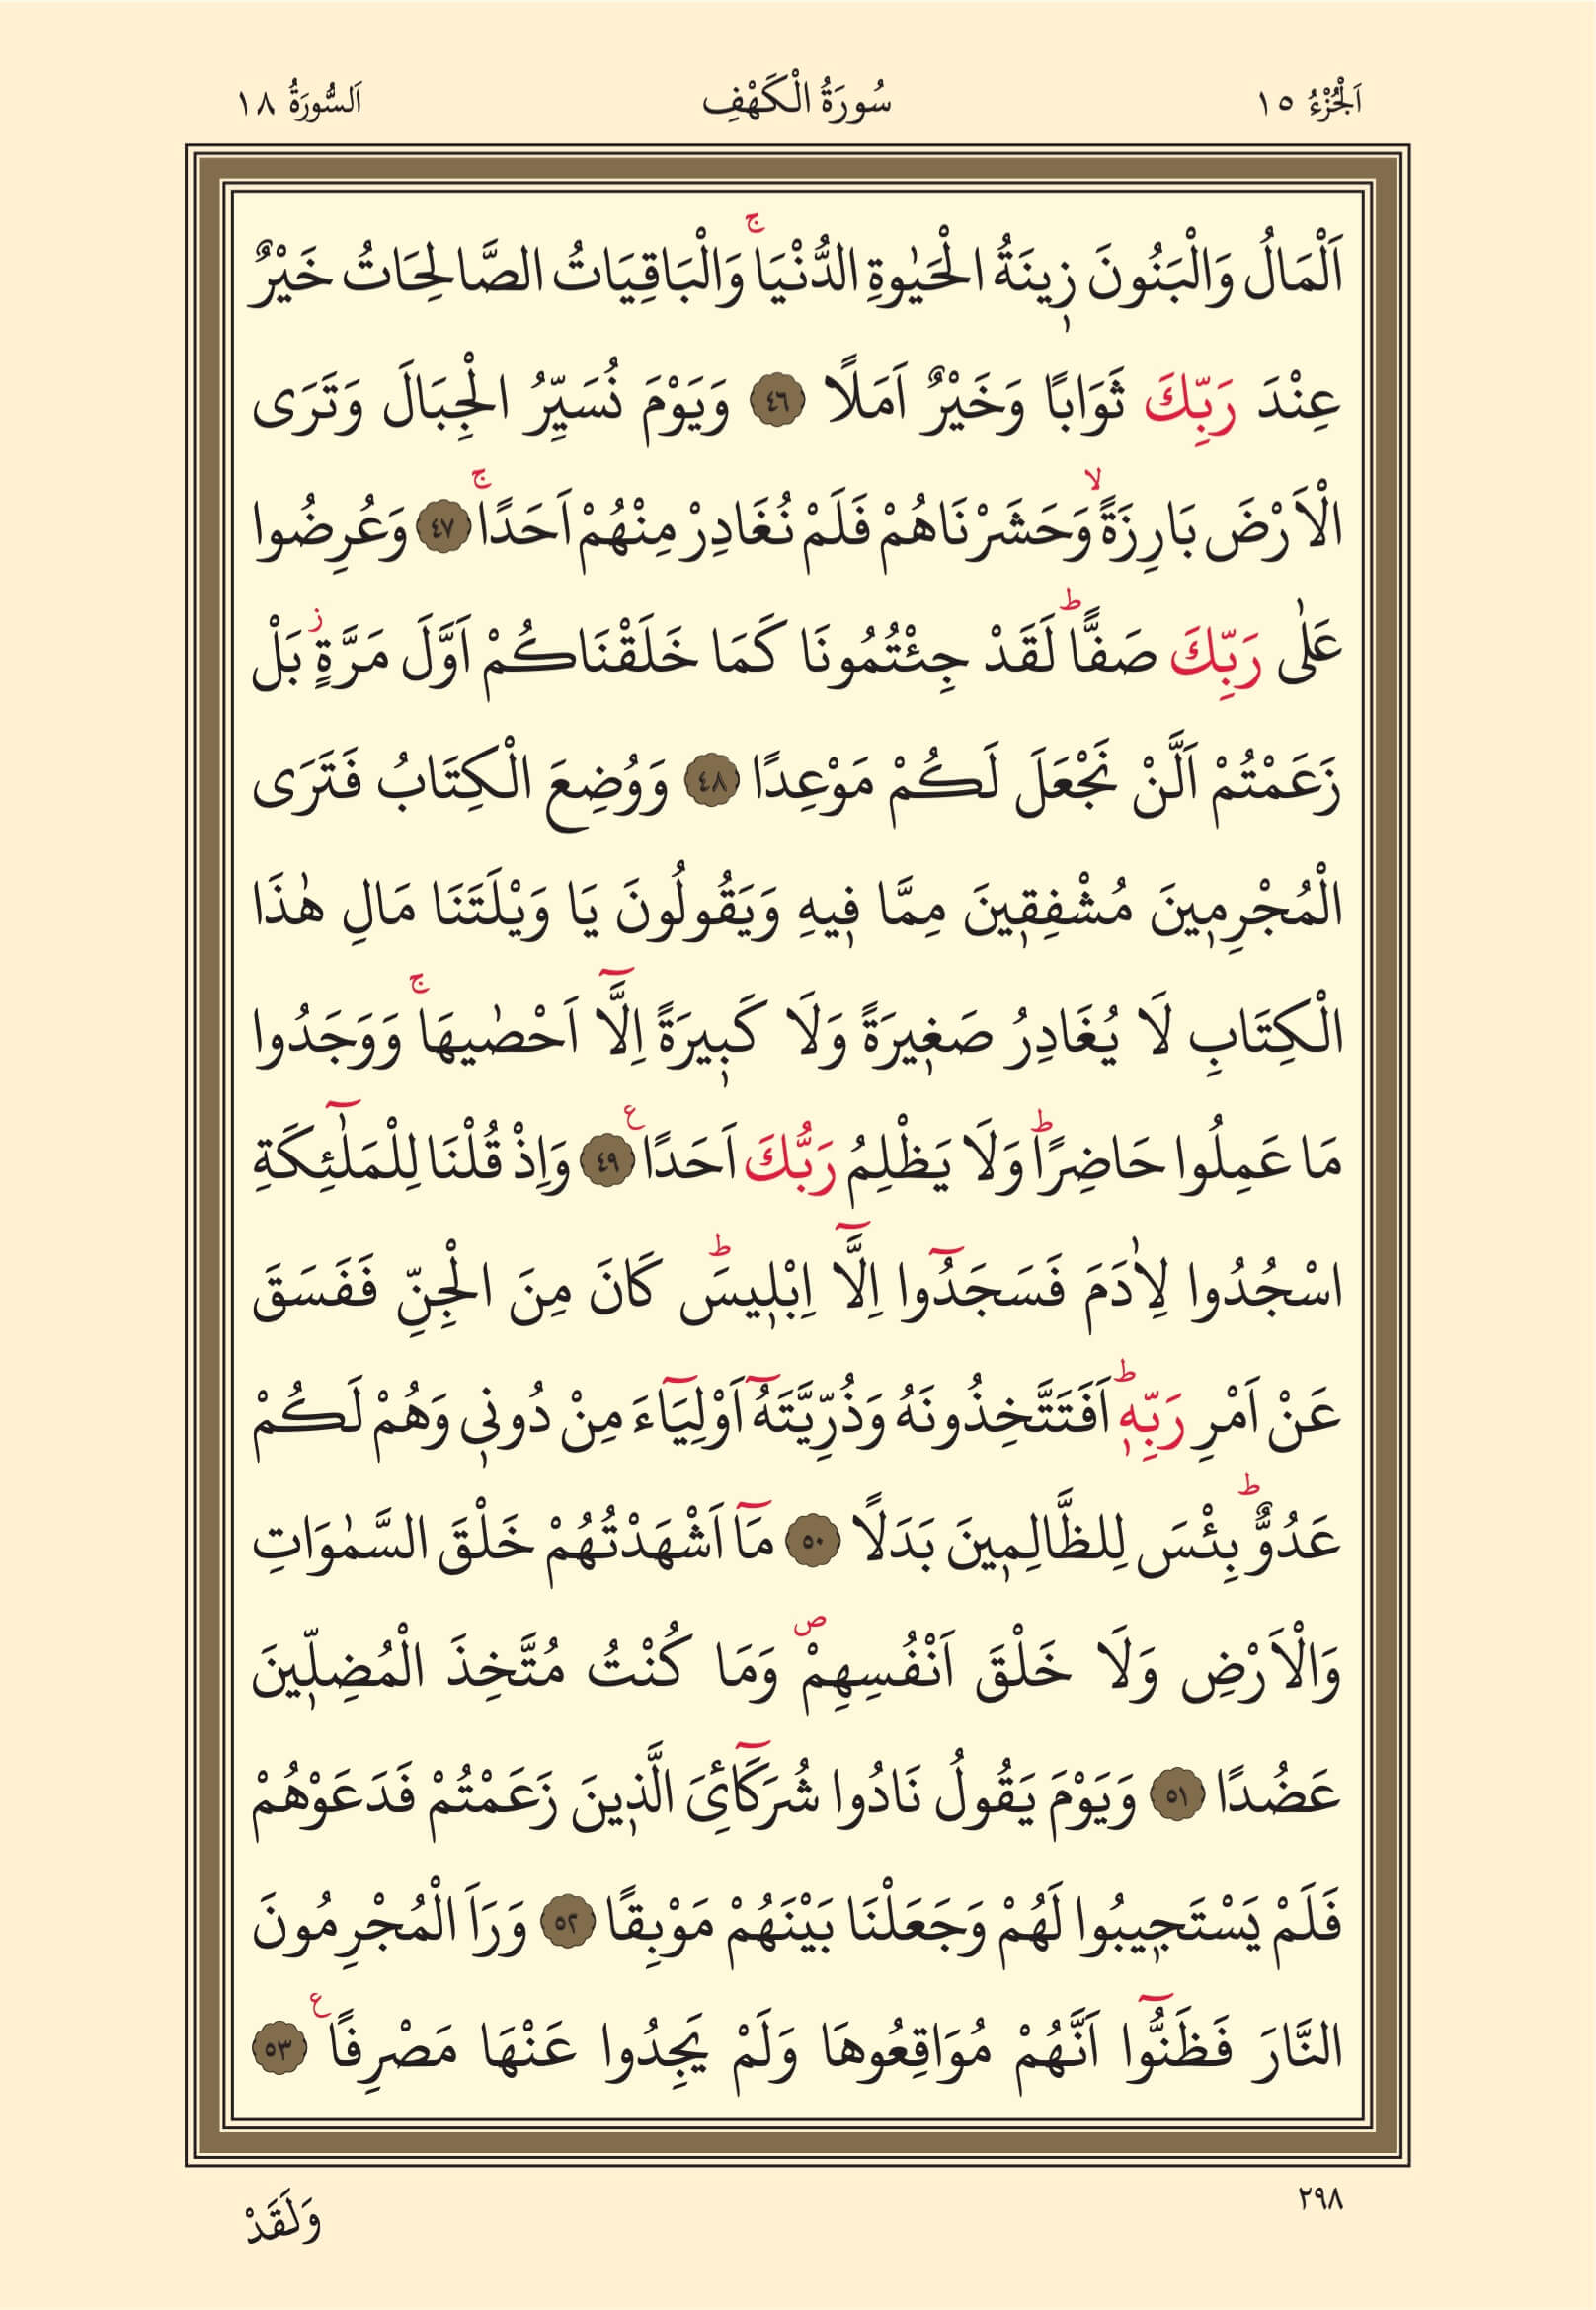 اَلْجُزْءُ ١٥ سُورَةُ الْكَهْفِ اَلسُّورَةُ ١٨
اَلْمَالُ وَالْبَنُونَ ز۪ينَةُ الْحَيٰوةِ الدُّنْيَاۚ وَالْبَاقِيَاتُ الصَّالِحَاتُ خَيْرٌ
عِنْدَ رَبِّكَ ثَوَابًا وَخَيْرٌ اَمَلًا ﴿٤٦﴾ وَيَوْمَ نُسَيِّرُ الْجِبَالَ وَتَرَى
الْاَرْضَ بَارِزَةًۙ وَحَشَرْنَاهُمْ فَلَمْ نُغَادِرْ مِنْهُمْ اَحَدًاۚ ﴿٤٧﴾ وَعُرِضُوا
عَلٰى رَبِّكَ صَفًّاۜ لَقَدْ جِئْتُمُونَا كَمَا خَلَقْنَاكُمْ اَوَّلَ مَرَّةٍۘ بَلْ
زَعَمْتُمْ اَلَّنْ نَجْعَلَ لَكُمْ مَوْعِدًا ﴿٤٨﴾ وَوُضِعَ الْكِتَابُ فَتَرَى
الْمُجْرِم۪ينَ مُشْفِق۪ينَ مِمَّا ف۪يهِ وَيَقُولُونَ يَا وَيْلَتَنَا مَالِ هٰذَا
الْكِتَابِ لَا يُغَادِرُ صَغ۪يرَةً وَلَا كَب۪يرَةً اِلَّٓا اَحْصٰيهَاۚ وَوَجَدُوا
مَا عَمِلُوا حَاضِرًاۜ وَلَا يَظْلِمُ رَبُّكَ اَحَدًا۟ ﴿٤٩﴾ وَاِذْ قُلْنَا لِلْمَلٰٓئِكَةِ
اسْجُدُوا لِاٰدَمَ فَسَجَدُٓوا اِلَّٓا اِبْل۪يسَۜ كَانَ مِنَ الْجِنِّ فَفَسَقَ
عَنْ اَمْرِ رَبِّه۪ۜ اَفَتَتَّخِذُونَهُ وَذُرِّيَّتَهُٓ اَوْلِيَٓاءَ مِنْ دُون۪ي وَهُمْ لَكُمْ
عَدُوٌّۜ بِئْسَ لِلظَّالِم۪ينَ بَدَلًا ﴿٥٠﴾ مَٓا اَشْهَدْتُهُمْ خَلْقَ السَّمٰوَاتِ
وَالْاَرْضِ وَلَا خَلْقَ اَنْفُسِهِمْۖ وَمَا كُنْتُ مُتَّخِذَ الْمُضِلّ۪ينَ
عَضُدًا ﴿٥١﴾ وَيَوْمَ يَقُولُ نَادُوا شُرَكَٓائِيَ الَّذ۪ينَ زَعَمْتُمْ فَدَعَوْهُمْ
فَلَمْ يَسْتَج۪يبُوا لَهُمْ وَجَعَلْنَا بَيْنَهُمْ مَوْبِقًا ﴿٥٢﴾ وَرَاَ الْمُجْرِمُونَ
النَّارَ فَظَنُّٓوا اَنَّهُمْ مُوَاقِعُوهَا وَلَمْ يَجِدُوا عَنْهَا مَصْرِفًا۟ ﴿٥٣﴾
٢٩٨
وَلَقَدْ